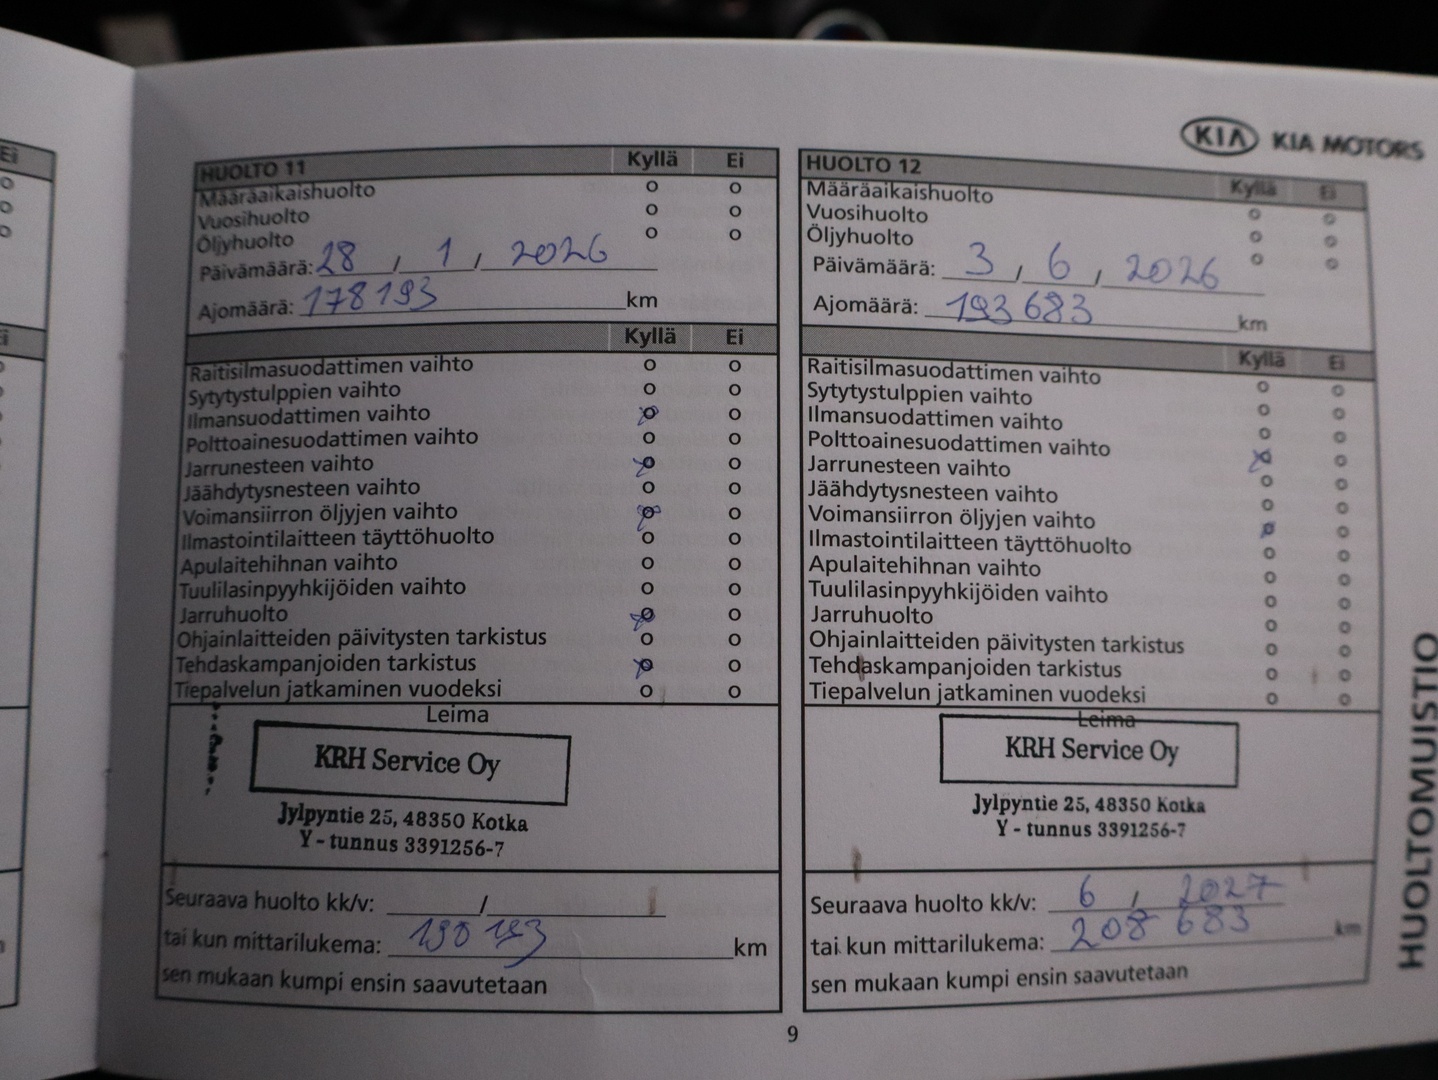 KIA KIA MOTORS
Ei
HUOLTO 11 Kyllä Ei
Määräaikaishuolto o o
Vuosihuolto o o
Öljyhuolto o o
Päivämäärä: 28 / 1 / 2026
Ajomäärä: 178193 km
Kyllä Ei
Raitisilmasuodattimen vaihto o o
Sytytystulppien vaihto o o
Ilmansuodattimen vaihto o o
Polttoainesuodattimen vaihto o o
Jarrunesteen vaihto o o
Jäähdytysnesteen vaihto o o
Voimansiirron öljyjen vaihto o o
Ilmastointilaitteen täyttöhuolto o o
Apulaitehihnan vaihto o o
Tuulilasinpyyhkijöiden vaihto o o
Jarruhuolto o o
Ohjainlaitteiden päivitysten tarkistus o o
Tehdaskampanjoiden tarkistus o o
Tiepalvelun jatkaminen vuodeksi o o
Leima
KRH Service Oy
Jylpyntie 25, 48350 Kotka
Y - tunnus 3391256-7
Seuraava huolto kk/v: /
tai kun mittarilukema: km
sen mukaan kumpi ensin saavutetaan
HUOLTO 12 Kyllä Ei
Määräaikaishuolto o o
Vuosihuolto o o
Öljyhuolto o o
Päivämäärä: 3 / 6 / 2026
Ajomäärä: 193 683 km
Kyllä Ei
Raitisilmasuodattimen vaihto o o
Sytytystulppien vaihto o o
Ilmansuodattimen vaihto o o
Polttoainesuodattimen vaihto o o
Jarrunesteen vaihto o o
Jäähdytysnesteen vaihto o o
Voimansiirron öljyjen vaihto o o
Ilmastointilaitteen täyttöhuolto o o
Apulaitehihnan vaihto o o
Tuulilasinpyyhkijöiden vaihto o o
Jarruhuolto o o
Ohjainlaitteiden päivitysten tarkistus o o
Tehdaskampanjoiden tarkistus o o
Tiepalvelun jatkaminen vuodeksi o o
Leima
KRH Service Oy
Jylpyntie 25, 48350 Kotka
Y - tunnus 3391256-7
Seuraava huolto kk/v: 6 / 2027
tai kun mittarilukema: 208 683 km
sen mukaan kumpi ensin saavutetaan
HUOLTOMUISTIO
9